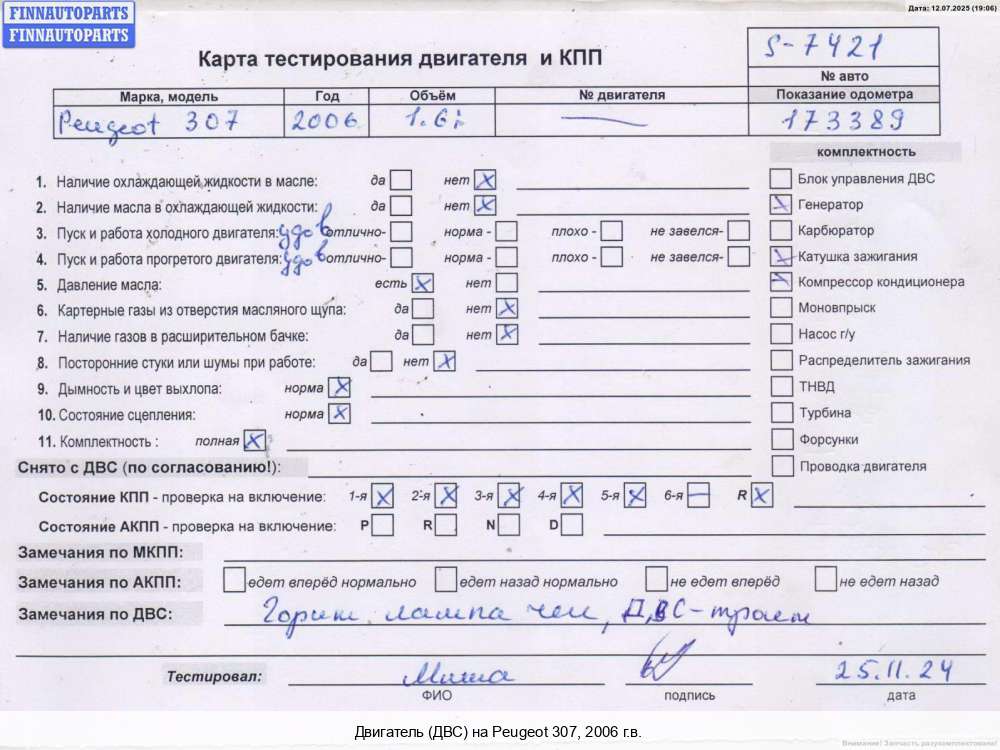 FINNAUTOPARTS
FINNAUTOPARTS
Дата: 12.07.2025 (19:06)
Карта тестирования двигателя и КПП
S-7421
№ авто
Марка, модель Год Объём № двигателя Показание одометра
Peugeot 307 2006 1.6i — 173389
комплектность
1. Наличие охлаждающей жидкости в масле: да нет X
Блок управления ДВС
2. Наличие масла в охлаждающей жидкости: да нет X
Генератор
3. Пуск и работа холодного двигателя: удов отлично- норма - плохо - не завелся-
Карбюратор
4. Пуск и работа прогретого двигателя: удов отлично- норма - плохо - не завелся-
Катушка зажигания
5. Давление масла: есть X нет
Компрессор кондиционера
6. Картерные газы из отверстия масляного щупа: да нет X
Моновпрыск
7. Наличие газов в расширительном бачке: да нет X
Насос г/у
8. Посторонние стуки или шумы при работе: да нет X
Распределитель зажигания
9. Дымность и цвет выхлопа: норма X
ТНВД
10. Состояние сцепления: норма X
Турбина
11. Комплектность : полная X
Форсунки
Снято с ДВС (по согласованию!):
Проводка двигателя
Состояние КПП - проверка на включение: 1-я X 2-я X 3-я X 4-я X 5-я X 6-я — R X
Состояние АКПП - проверка на включение: P R N D
Замечания по МКПП:
Замечания по АКПП: едет вперёд нормально едет назад нормально не едет вперёд не едет назад
Замечания по ДВС: Горит лампа чек, ДВС-троит
Тестировал: Миша 25.11.24
ФИО подпись дата
Двигатель (ДВС) на Peugeot 307, 2006 г.в.
Внимание! Запчасть разукомплектована!